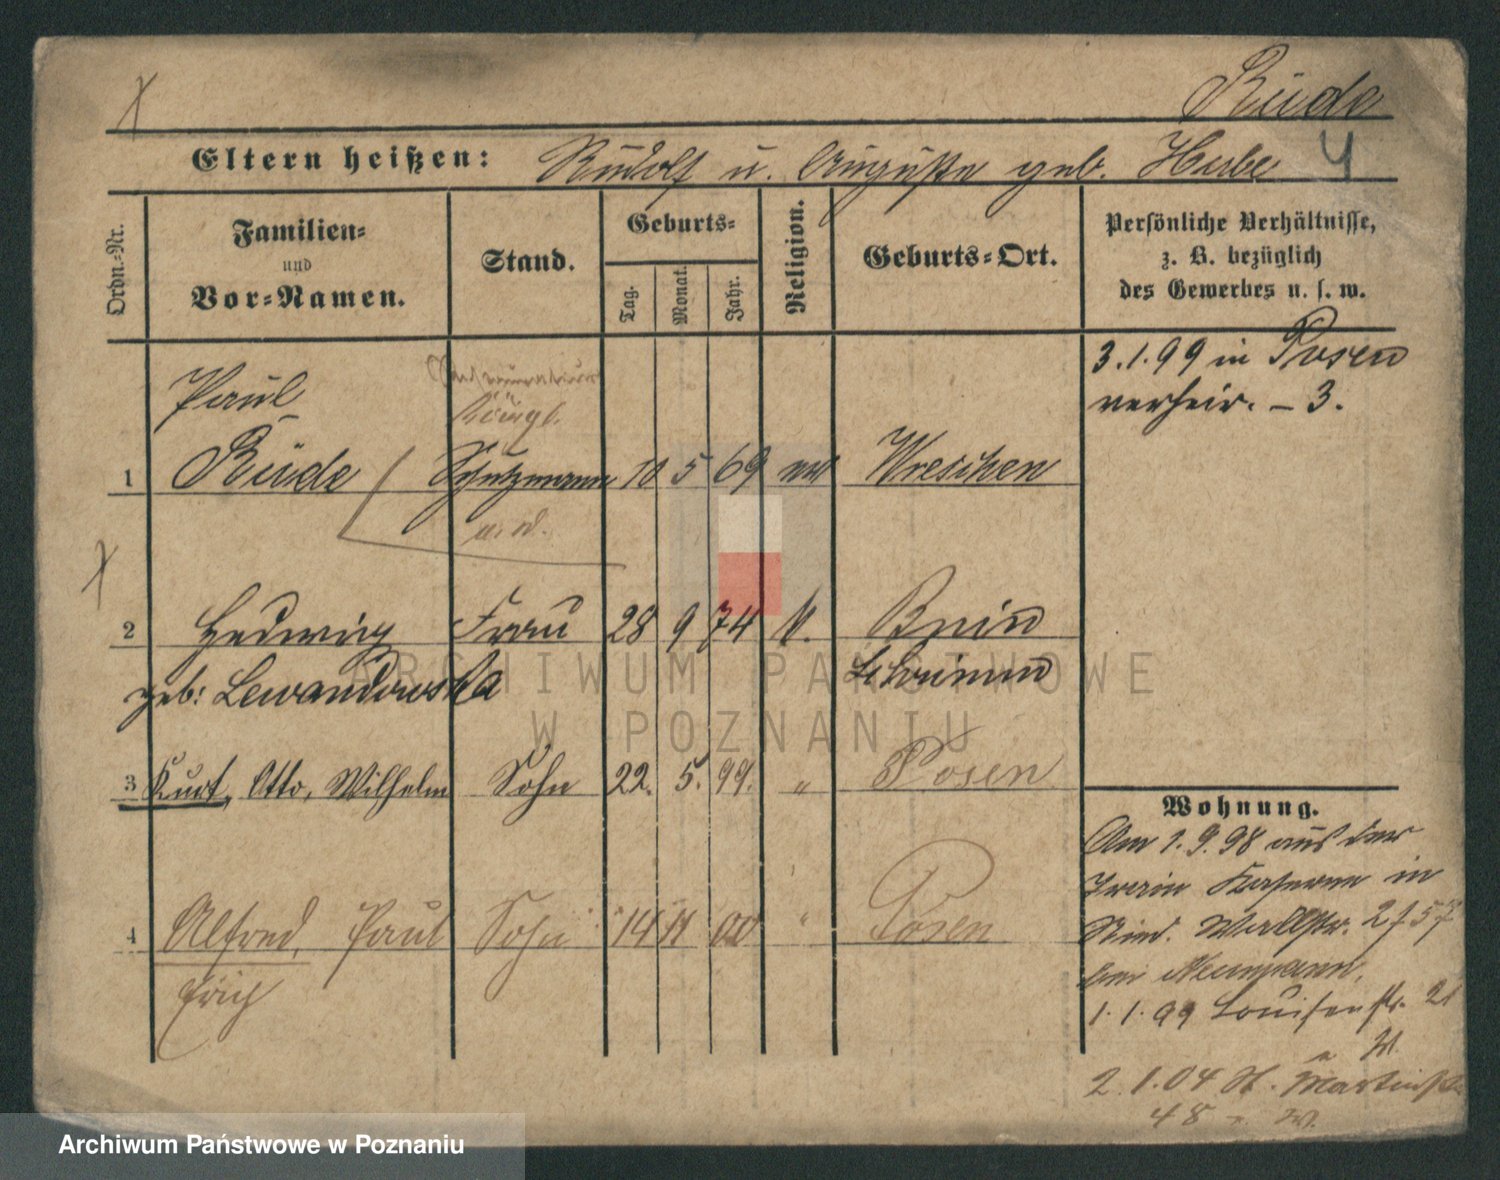 Rüde
Eltern heißen: Rudolf u. Auguste geb. Hube 4
Ordn.-Nr.
Familien-
und
Vor-Namen.
Stand.
Geburts-
Tag.
Monat.
Jahr.
Religion.
Geburts-Ort.
Persönliche Verhältnisse,
z. B. bezüglich
des Gewerbes u. s. w.
3.1.99 in Posen
verheir. – 3.
Paul
Königl.
1 Rüde Schutzmann 10 5 69 Wreschen
a. D.
2 Hedwig Frau 28 9 74 k. Bnin
geb: Lewandowska Schrimm
3 Kurt, Otto, Wilhelm Sohn 22. 5. 99. " Posen
4 Alfred, Paul Sohn 14 11 00 " Posen
Erich
Wohnung.
Am 1.9.98 aus der
Train Kaserne in
Wallstr. 57
bei Neumann,
1.1.99 Louisenstr. 21
W.
2.1.04 St. Martinstr.
48 W.
ARCHIWUM PAŃSTWOWE
W POZNANIU
Archiwum Państwowe w Poznaniu